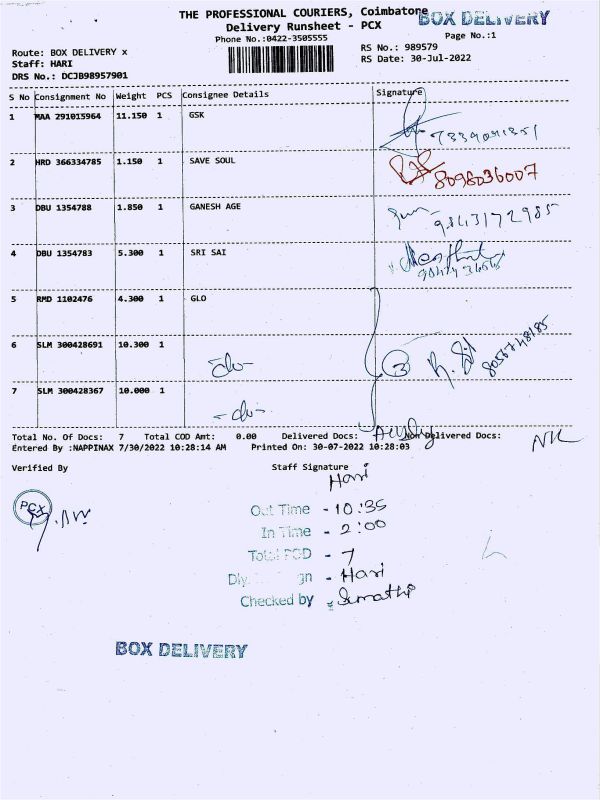 THE PROFESSIONAL COURIERS, Coimbatone
BOX DELIVERY
Delivery Runsheet - PCX
Phone No.:0422-3505555
Page No.:1
Route: BOX DELIVERY x
RS No.: 989579
Staff: HARI
RS Date: 30-Jul-2022
DRS No.: DCJB98957901
S No Consignment No Weight PCS Consignee Details Signature
1 MAA 291015964 11.150 1 GSK
7339041351
2 HRD 366334785 1.150 1 SAVE SOUL
8098036007
3 DBU 1354788 1.850 1 GANESH AGE
9843172985
4 DBU 1354783 5.300 1 SRI SAI
5 RMD 1102476 4.300 1 GLO
6 SLM 300428691 10.300 1
-do-
3
8056748185
7 SLM 300428367 10.000 1
-do-
Total No. Of Docs: 7 Total COD Amt: 0.00 Delivered Docs: Non Delivered Docs:
Entered By :NAPPINAX 7/30/2022 10:28:14 AM Printed On: 30-07-2022 10:28:03
Verified By Staff Signature
Hari
PCX
Out Time - 10:35
In Time - 2:00
Total POD - 7
Hari
Checked by Sumathi
BOX DELIVERY